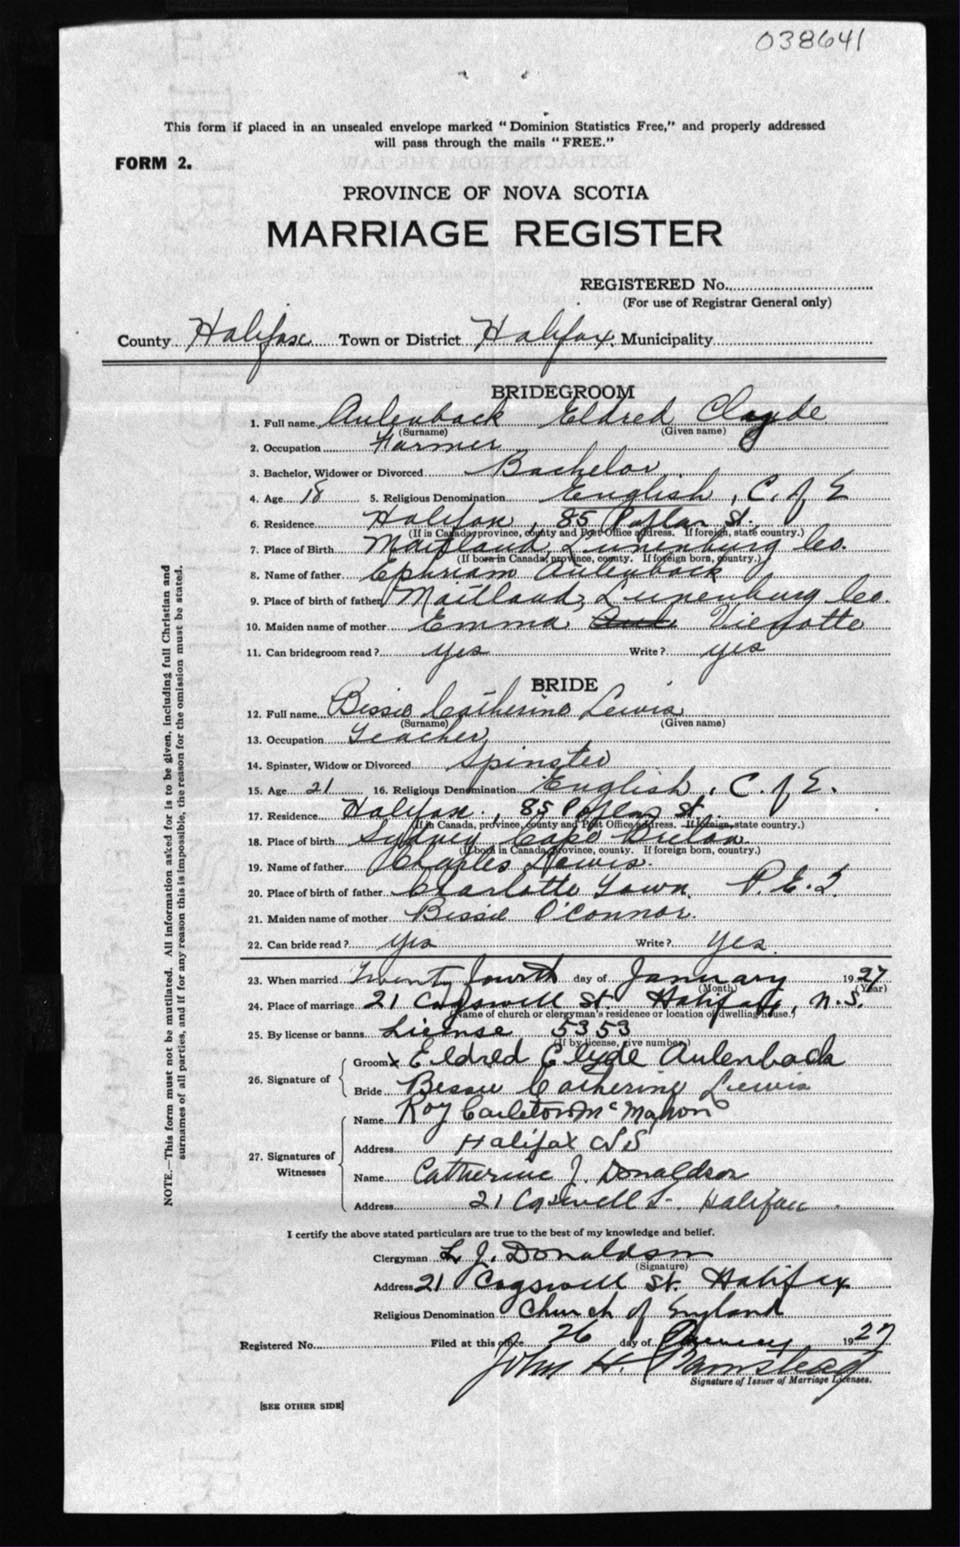 038641
This form if placed in an unsealed envelope marked "Dominion Statistics Free," and properly addressed
will pass through the mails "FREE."
FORM 2.
PROVINCE OF NOVA SCOTIA
MARRIAGE REGISTER
REGISTERED No.
(For use of Registrar General only)
County Halifax Town or District Halifax Municipality
BRIDEGROOM
1. Full name Aulenback Eldred Clayde
(Surname) (Given name)
2. Occupation Farmer
3. Bachelor, Widower or Divorced Bachelor
4. Age 18 5. Religious Denomination English, C. of E
6. Residence Halifax, 85 Poplar St.
(If in Canada, province, county and Post Office address. If foreign, state country.)
7. Place of Birth Maitland, Lunenburg Co.
(If born in Canada, province, county. If foreign born, country.)
8. Name of father Ephriam Aulenback
9. Place of birth of father Maitland, Lunenburg Co.
10. Maiden name of mother Emma Vienotte
11. Can bridegroom read? yes Write? yes
BRIDE
12. Full name Bessie Catherine Lewis
(Surname) (Given name)
13. Occupation Teacher
14. Spinster, Widow or Divorced Spinster
15. Age 21 16. Religious Denomination English, C. of E.
17. Residence Halifax, 85 Poplar St.
(If in Canada, province, county and Post Office address. If foreign, state country.)
18. Place of birth Sydney Cape Breton.
(If born in Canada, province, county. If foreign born, country.)
19. Name of father Charles Lewis.
20. Place of birth of father Charlotte Town, P.E.I.
21. Maiden name of mother Bessie O'Connor.
22. Can bride read? yes Write? yes
23. When married Twenty fourth day of January 1927
(Month) (Year)
24. Place of marriage 21 Cogswell St Halifax, N.S.
(Name of church or clergyman's residence or location of dwelling house.)
25. By license or banns License 5353
(If by license, give number)
26. Signature of
Groom x Eldred Clyde Aulenback
Bride Bessie Catherine Lewis
27. Signatures of Witnesses
Name Roy Carleton McMahon
Address Halifax NS
Name Catherine J. Donaldson
Address 21 Cogswell St. Halifax
I certify the above stated particulars are true to the best of my knowledge and belief.
Clergyman L. J. Donaldson
(Signature)
Address 21 Cogswell St. Halifax
Religious Denomination Church of England
Registered No. Filed at this office 26 day of January 1927
John H. Barnstead
Signature of Issuer of Marriage Licenses.
[SEE OTHER SIDE]
NOTE.—This form must not be mutilated. All information asked for is to be given, including full Christian and
surnames of all parties, and if for any reason this is impossible, the reason for the omission must be stated.